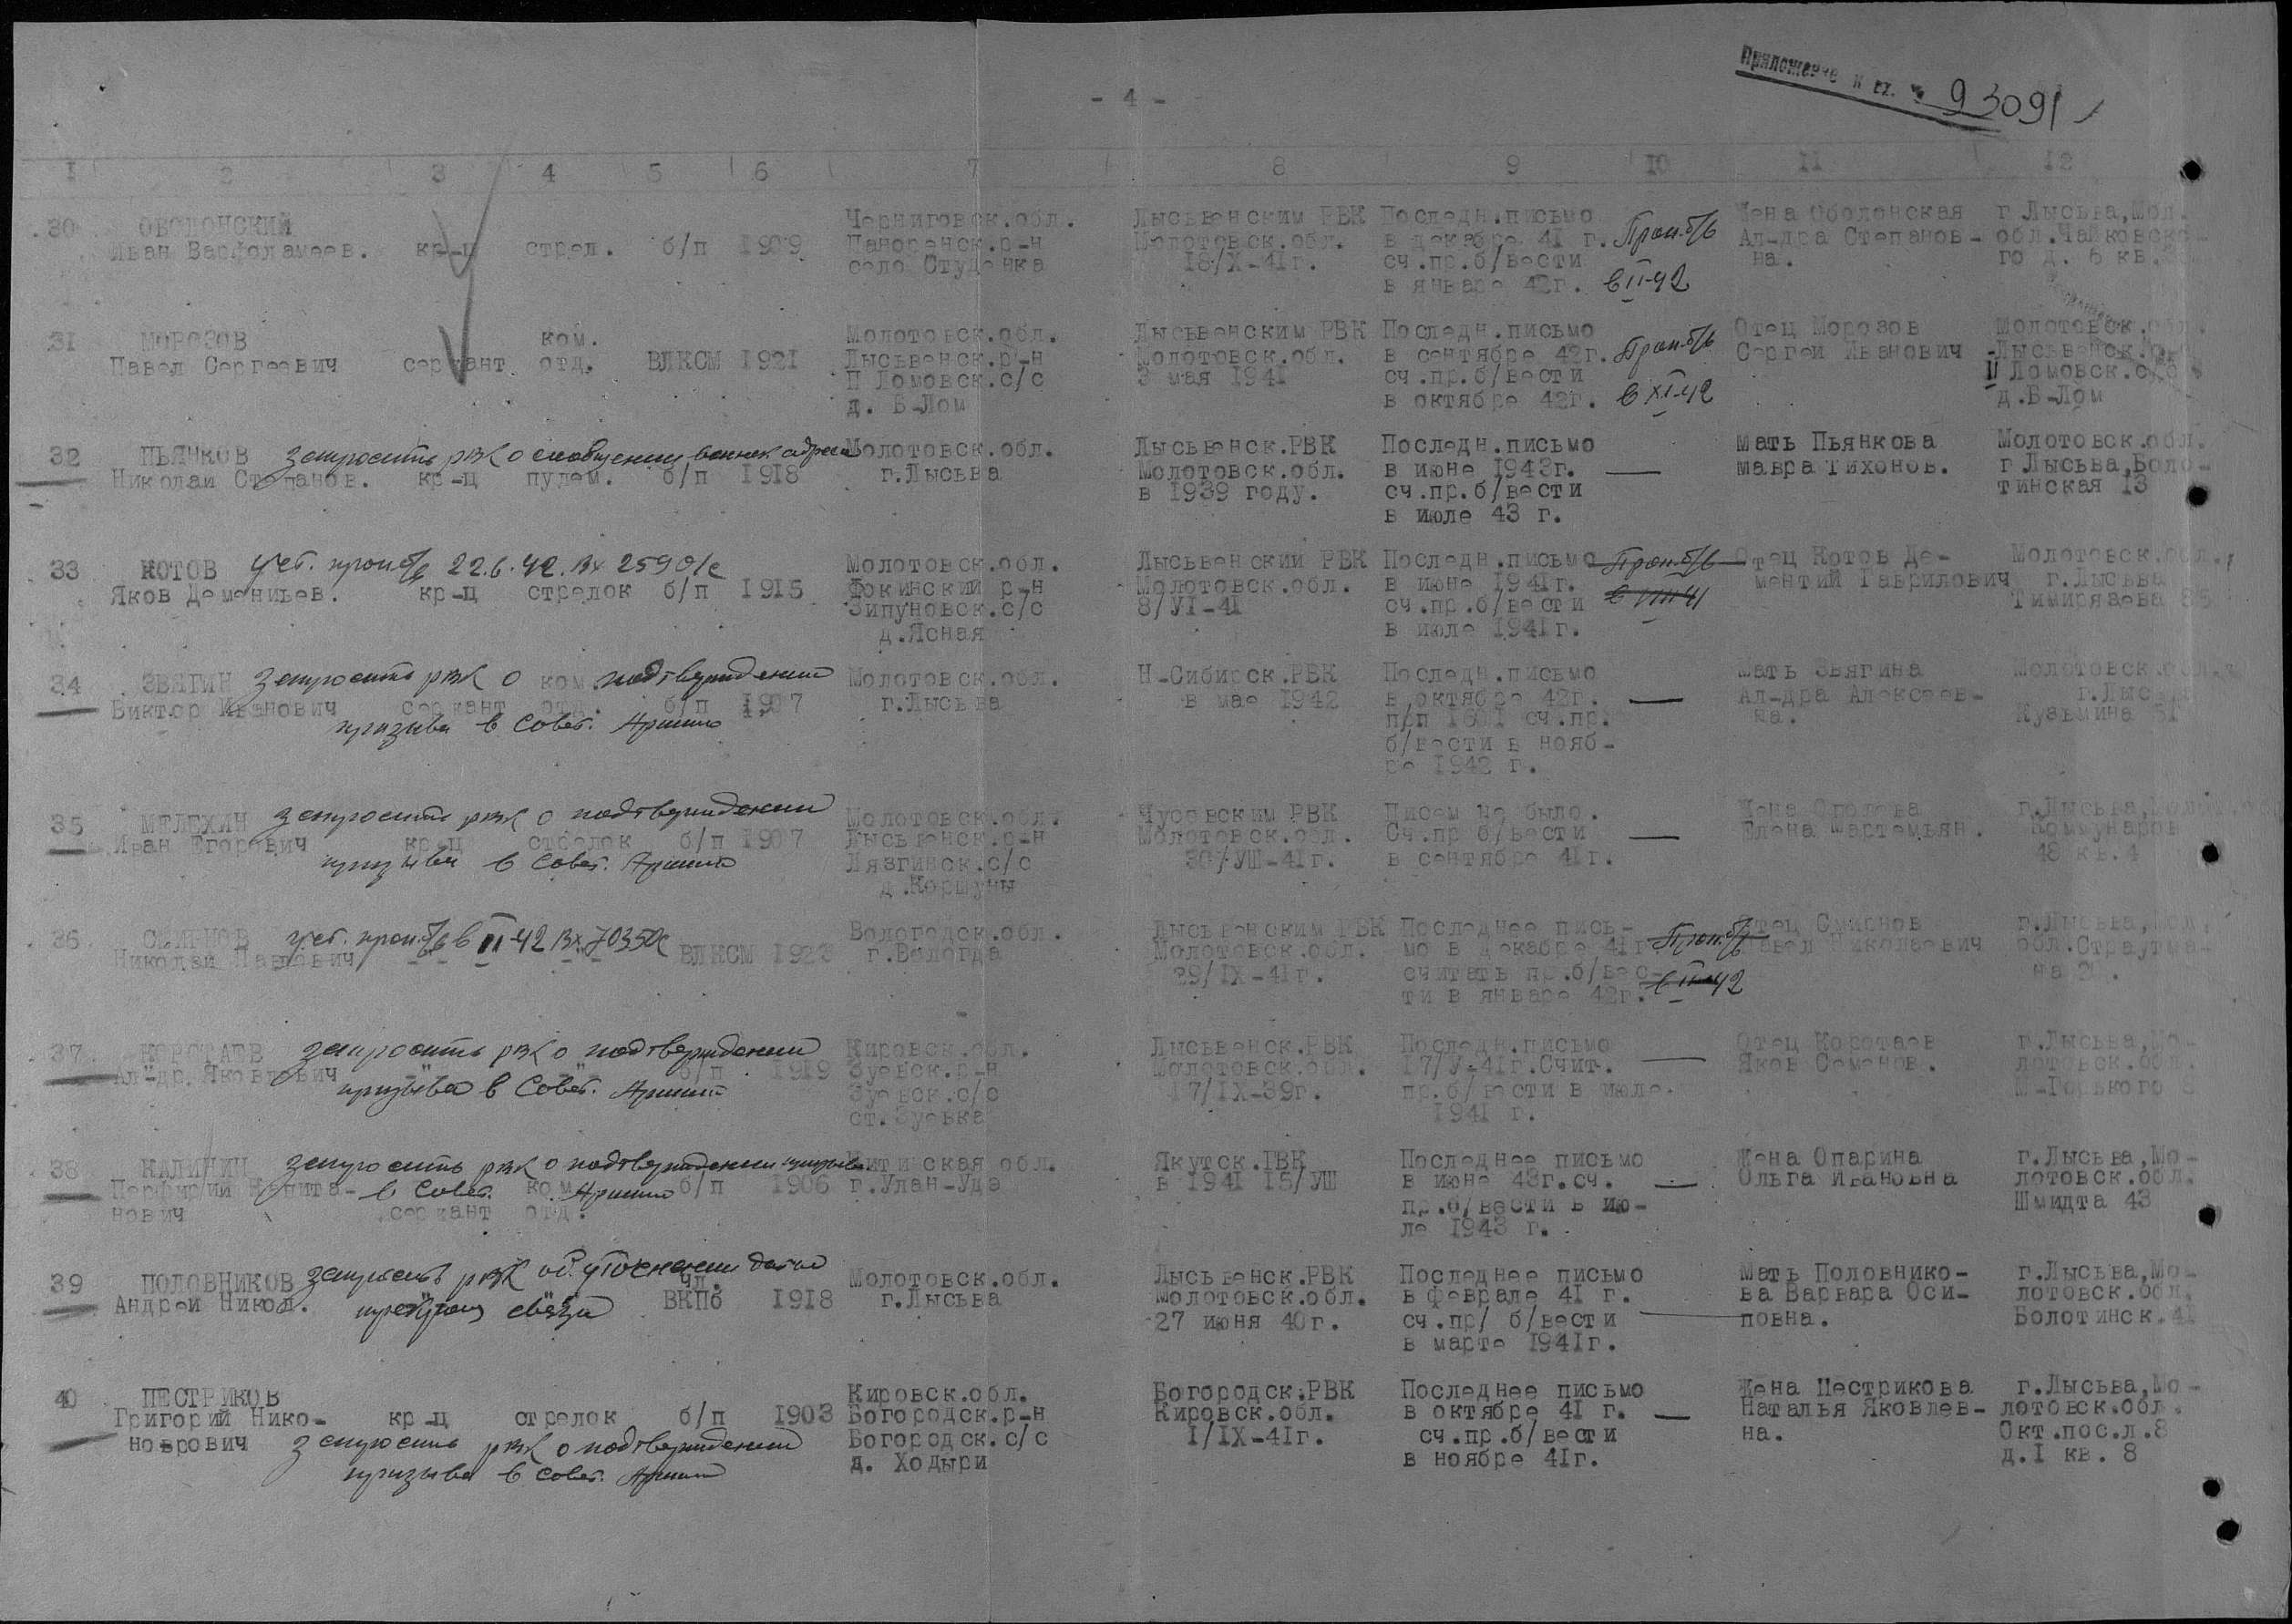 Приложение к вх. 93091
- 4 -
1 2 3 4 5 6 7 8 9 10 11 12
30 ОБОЛОНСКИЙ Черниговск.обл. Лысьвенским РВК Последн.письмо Жена Оболонская г Лысьва,Мол.
Иван Варфоламеев. кр-ц стрел. б/п 1909 р-н Молотовск.обл. в декабре 41 г. Проп.б/в Ал-дра Степанов- обл.Чайковско-
село Студенка 18/X-41г. сч.пр.б/вести на. го д. 6 кв.
в январе 42г. в II-42
31 МОРОЗОВ ком. Молотовск.обл. Лысьвенским РВК Последн.письмо Отец Морозов Молотовск.обл.
Павел Сергеевич сержант отд. ВЛКСМ 1921 Лысьвенск.р-н Молотовск.обл. в сентябре 42г. Проп.б/в Сергей Иванович Лысьвенск.
П Ломовск.с/с 3 мая 1941 сч.пр.б/вести II Ломовск.с/с
д. Б-Лом в октябре 42г. в XI-42 д.Б-Лом
32 ПЬЯНКОВ запросить рвк о сообщении воинск адреса Молотовск.обл. Лысьвенск.РВК Последн.письмо мать Пьянкова Молотовск.обл.
Николай Степанов. кр-ц пулем. б/п 1918 г.Лысьва Молотовск.обл. в июне 1943г. — мавра Тихонов. г Лысьва,Боло-
в 1939 году. сч.пр.б/вести тинская 13
в июле 43 г.
33 КОТОВ учт. проп.б/в 22.6.42.Вх 2590/с Молотовск.обл. Лысьвенский РВК Последн.письмо Проп.б/в Отец Котов Де- Молотовск.обл.,
Яков Дементьев. кр-ц стрелок б/п 1915 Фокинский р-н Молотовск.обл. в июне 1941г. ментий Гаврилович г.Лысьва
Зипуновск.с/с 8/УI-41 сч.пр.б/вести в VIII 41 Тимирязева
д.Ясная в июле 1941г.
34 ЗВЯГИН запросить рвк о ком. подтверждении Молотовск.обл. Н-Сибирск.РВК Последн.письмо мать Звягина Молотовск.обл.
Виктор Иванович сержант отд. б/п 1907 г.Лысьва в мае 1942 в октябре 42г. — Ал-дра Алексеев- г.Лысьва
призыва в Совет. Армию п/п сч.пр. на. Кузьмина 51
б/вести в нояб-
ре 1942 г.
35 МЕЛЕХИН запросить рвк о подтверждении Молотовск.обл. Чусовским РВК Писем не было. Жена г.Лысьва,
Иван Егорович кр-ц стрелок б/п 1907 Лысьвенск.р-н Молотовск.обл. Сч.пр б/вести — Елена Мартемьян. Коммунаров
призыва в Совет. Армию Лязгинск.с/с 30/УШ-41г. в сентябре 41г. 48 кв.4
д.Коршуны
36 СМИРНОВ учт. проп.б/в в II-42 Вх.70350с Вологодск.обл. Лысьвенским РВК Последнее пись- Отец Смирнов г.Лысьва,
Николай Павлович ВЛКСМ 1923 г.Вологда Молотовск.обл. мо в декабре 41г. Проп.б/в Павел Николаевич обл.Страутма-
29/IX-41г. считать пр.б/вес- на
ти в январе 42г. в II-42
37 КОРОТАЕВ запросить рвк о подтверждении Кировск.обл. Лысьвенск.РВК Последн.письмо Отец Коротаев г.Лысьва,Мо-
Ал-др.Яковлевич б/п 1919 Зуевск.р-н Молотовск.обл. 17/У-41г.Счит. — Яков Семенов. лотовск.обл.
призыва в Совет. Армию Зуевск.с/с 7/IX-39г. пр.б/вести в июле М-Горького
ст.Зуевка 1941 г.
38 КАЛИНИН запросить рвк о подтверждении призыва Читинская обл. Якутск.ГВК Последнее письмо Жена Опарина г.Лысьва,Мо-
Перфирий Капита- в Совет. ком. Армию б/п 1906 г.Улан-Удэ в 1941 15/УШ в июне 43г.сч. — Ольга Ивановна лотовск.обл.
нович сержант отд. пр.б/вести в ию- Шмидта 43
ле 1943 г.
39 ПОЛОВНИКОВ запросить рвк об уточнении даты чл. Молотовск.обл. Лысьвенск.РВК Последнее письмо Мать Половнико- г.Лысьва,Мо-
Андрей Никол. прекращ связи ВКПб 1918 г.Лысьва Молотовск.обл. в феврале 41 г. ва Варвара Оси- лотовск.обл.
27 июня 40г. сч.пр/ б/вести — повна. Болотинск.41
в марте 1941г.
40 ПЕСТРИКОВ Кировск.обл. Богородск.РВК Последнее письмо Жена Пестрикова г.Лысьва,Мо-
Григорий Нико- кр-ц стрелок б/п 1903 Богородск.р-н Кировск.обл. в октябре 41 г. — Наталья Яковлев- лотовск.обл.
норович запросить рвк о подтверждении Богородск.с/с 1/IX-41г. сч.пр.б/вести на. Окт.пос.л.8
призыва в Совет. Армию д. Ходыри в ноябре 41г. д.1 кв. 8